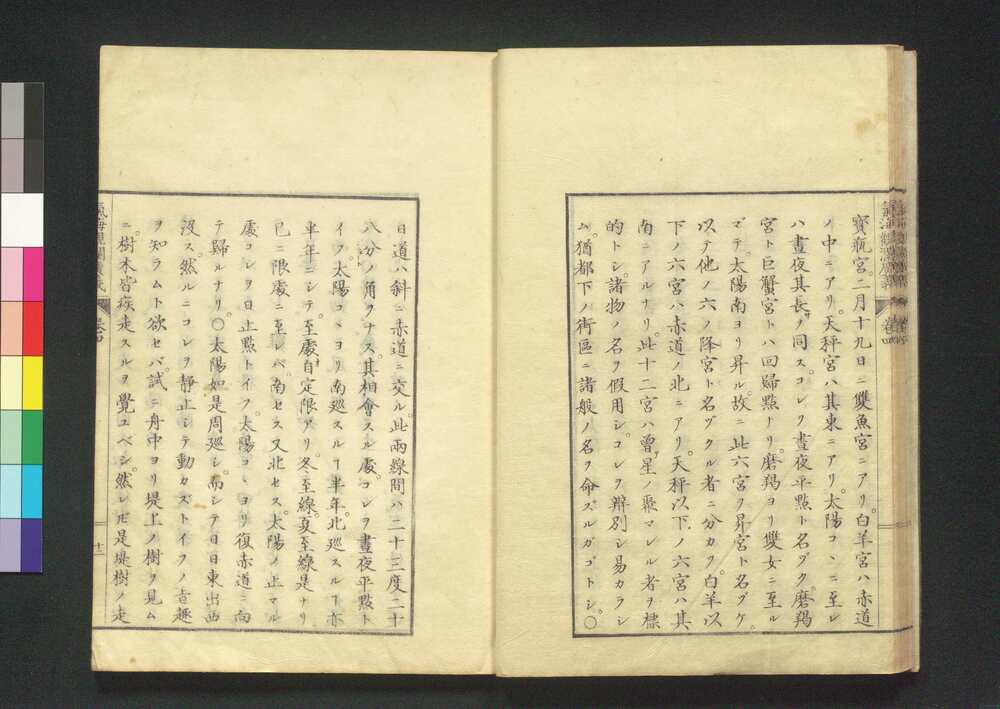 寶瓶宮。二月十九日ニ雙魚宮ニアリ。白羊宮ハ赤道
ノ中ニアリ。天秤宮ハ其東ニアリ。太陽コヽニ至レ
ハ晝夜其長ヲ同ス。コレヲ晝夜平點ト名ヅク。磨羯
宮ト巨蟹宮トハ回歸點ナリ。磨羯ヨリ雙女ニ至ル
マデ。太陽南ヨリ昇ル。故ニ此六宮ヲ昇宮ト名ヅケ。
以テ他ノ六ノ降宮ト名ヅクル者ニ分カツ。白羊以
下ノ六宮ハ赤道ノ北ニアリ。天秤以下ノ六宮ハ其
南ニアルナリ。此十二宮ハ曾星ノ聚マレル者ヲ標
的トシ。諸物ノ名ヲ假用シ。コレヲ辨別シ易カラシ
ム。猶都下ノ街區ニ諸般ノ名ヲ命ズルガゴトシ。〇
日道ハ斜ニ赤道ニ交ル。此兩線間ハ二十三度二十
八分ノ角ヲナス。其相會スル處。コレヲ晝夜平點ト
イフ。太陽コヽヨリ南巡スルヿ半年。北巡スルヿ亦
半年ニシテ。至處自定限アリ。冬至線。夏至線是ナリ
已ニ限處ニ至レバ。南セス又北セス。太陽ノ止マル
處コレヲ日止點トイフ。太陽コヽヨリ復赤道ニ向
テ歸ルナリ。〇太陽如是周巡シ。而シテ日日東出西
沒ス。然ルニコレヲ靜止シテ動カズトイフノ旨趣
ヲ知ラムト欲セバ。試ニ舟中ヨリ堤上ノ樹ヲ見ム
ニ。樹木皆疾走スルヲ覺ユベシ。然レ𪜈是堤樹ノ走
氣海觀瀾廣義
卷四
十二